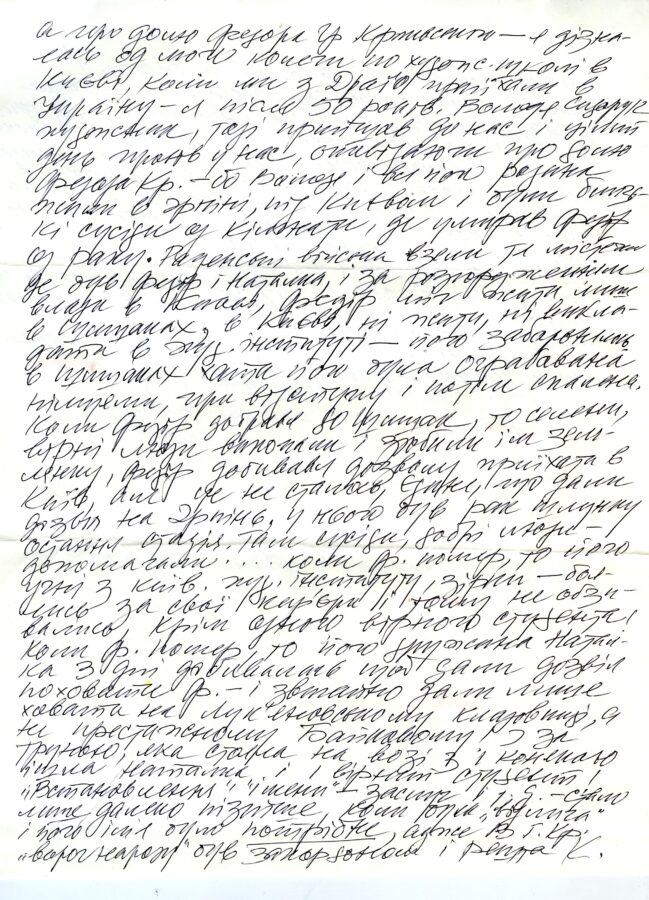 а про долю Федора Гр Кричевського — я дізна-
лась од моєї колеги по худож. школі в
Києві, коли ми з Драґо приїхали в
Україну — я після 50 років. Володя Сидорук
художник, тоді прийшов до нас і цілий
день провів у нас, оповідаючи про долю
Федора Кр. — бо Володя і вся його родина
жили в Ірпіні, під Києвом і були близь-
кі сусіди од кімнати, де умирав Федір
од раку. Радянські війська взяли те містечко
де був Федір і Наталка, і за розпорядженням
влади в Києві, Федір міг жити лише
в Сушанах, в Києві, ні жити, ні викла-
дати в худ. інституті — його заборонили
в хата його була ограбована
німцями, при відступу і потім спалена.
Коли Федір добрався до то селяни,
вірні люди викопали і зробили їм зем-
лянку, Федір добивався дозволу приїхати в
Київ, але це не сталося, єдине, що дали
дозвіл на Ірпінь, у нього був рак шлунку
остання стадія. Там сусіди, добрі люди —
допомагали .... коли Ф. помер, то його
учні з Київ. худ. інституту, зірки — боя-
лись за свої кар'єри і тому не обзи-
вались, крім одного вірного студента!
коли Ф. помер, то його дружина Натал-
ка 3 дні добивалась щоб дали дозвіл
поховати Ф. — і звичайно дали лише
ховати на Лук'яновському кладовищі, а
не престижному Байковому! І за
труною, яка стояла на возі з 1 конем
ішла Наталка і 1 вірний студент!
"Встановлення" "імени" — і т. д. — стало
лише далеко пізніше, коли була "відлига"
і його ім'я було потрібне, адже В. Г. Кр.
"ворог народу" був закордоном і